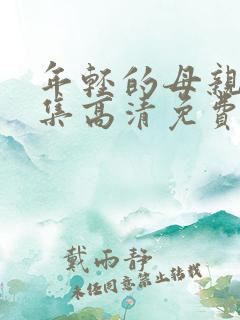 年轻的母親
集高清免費
戴雨静
未任同意禁止转载